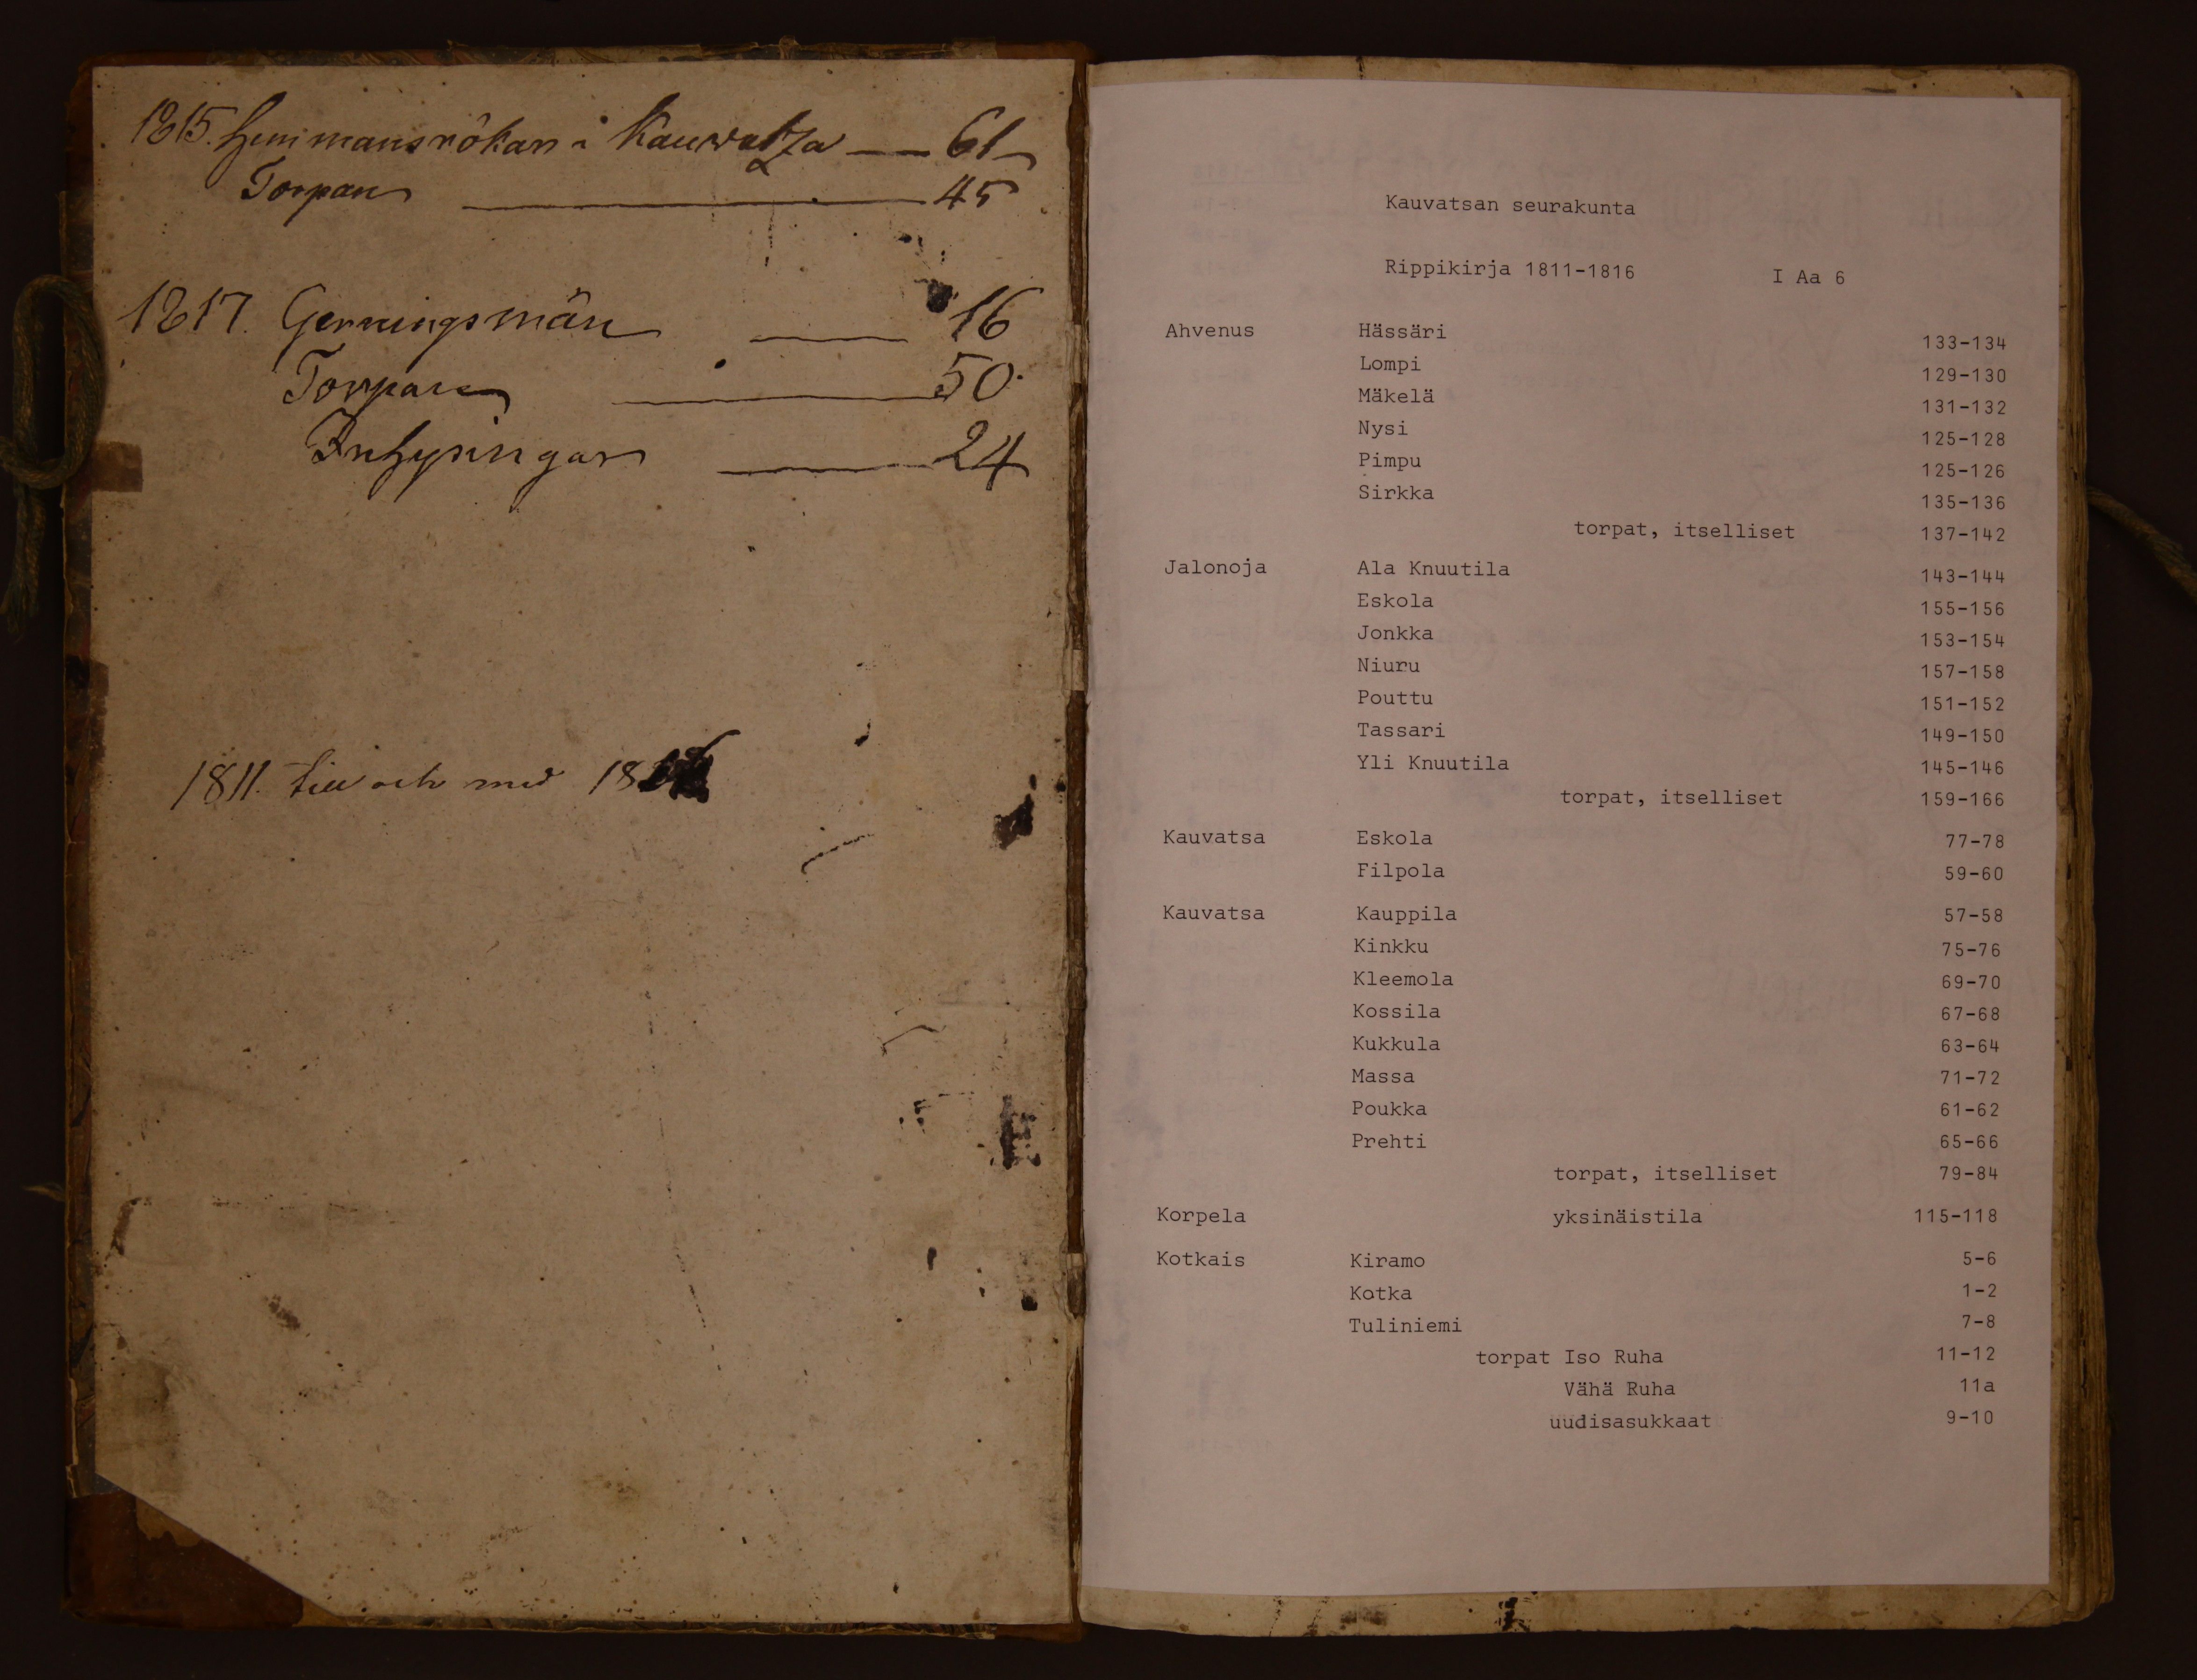 1815. Hemmansrökar i Kauwatza — 61
Torpare — 45
1817. Gerningsmän — 16
Torpare — 50
Inhysingar — 24
1811. till och med 18
Kauvatsan seurakunta
Rippikirja 1811-1816 I Aa 6
Ahvenus Hässäri 133-134
Lompi 129-130
Mäkelä 131-132
Nysi 125-128
Pimpu 125-126
Sirkka 135-136
torpat, itselliset 137-142
Jalonoja Ala Knuutila 143-144
Eskola 155-156
Jonkka 153-154
Niuru 157-158
Pouttu 151-152
Tassari 149-150
Yli Knuutila 145-146
torpat, itselliset 159-166
Kauvatsa Eskola 77-78
Filpola 59-60
Kauvatsa Kauppila 57-58
Kinkku 75-76
Kleemola 69-70
Kossila 67-68
Kukkula 63-64
Massa 71-72
Poukka 61-62
Prehti 65-66
torpat, itselliset 79-84
Korpela yksinäistila 115-118
Kotkais Kiramo 5-6
Kotka 1-2
Tuliniemi 7-8
torpat Iso Ruha 11-12
Vähä Ruha 11a
uudisasukkaat 9-10